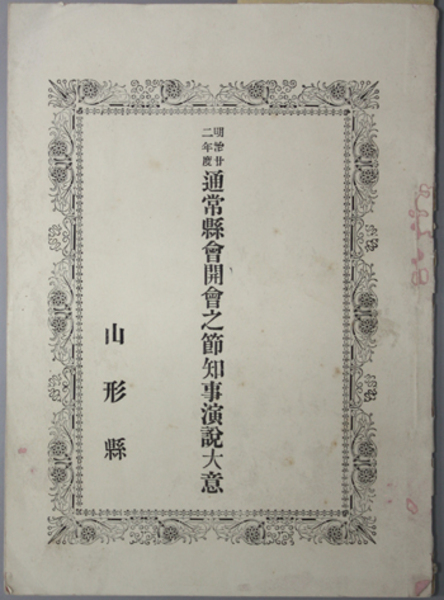 明治廿二年度通常縣會開會之節知事演說大意
山形縣